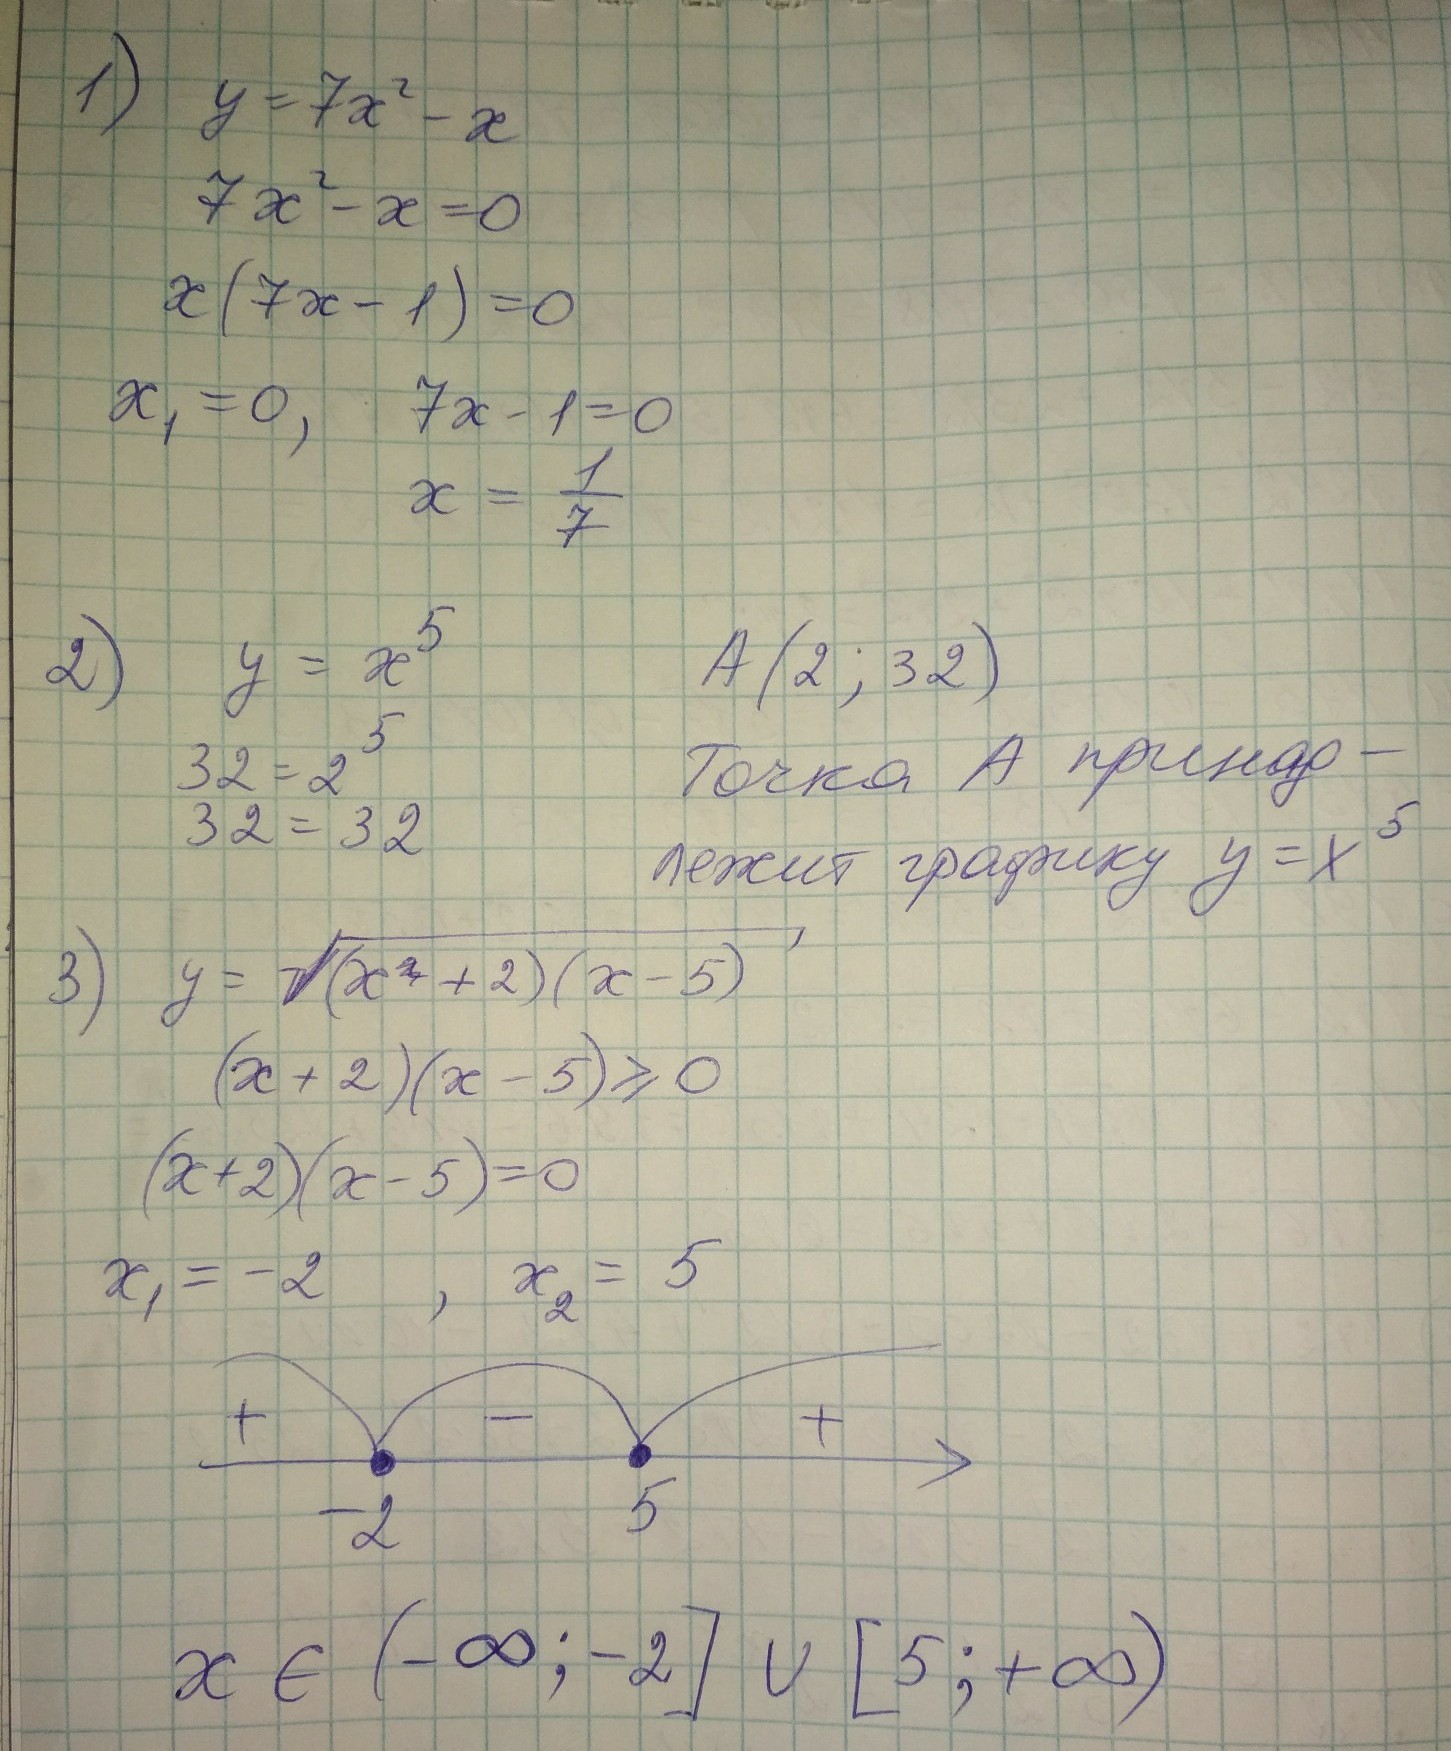 1) y = 7x² - x
7x² - x = 0
x(7x - 1) = 0
x₁ = 0, 7x - 1 = 0
x = 1/7
2) y = x⁵ A(2; 32)
32 = 2⁵ Точка A принад-
32 = 32
лежит графику y = x⁵
3) y = √((x + 2)(x - 5)),
(x + 2)(x - 5) ⩾ 0
(x + 2)(x - 5) = 0
x₁ = -2 , x₂ = 5
+ - +
-2 5
x ∈ (-∞; -2] ∪ [5; +∞)